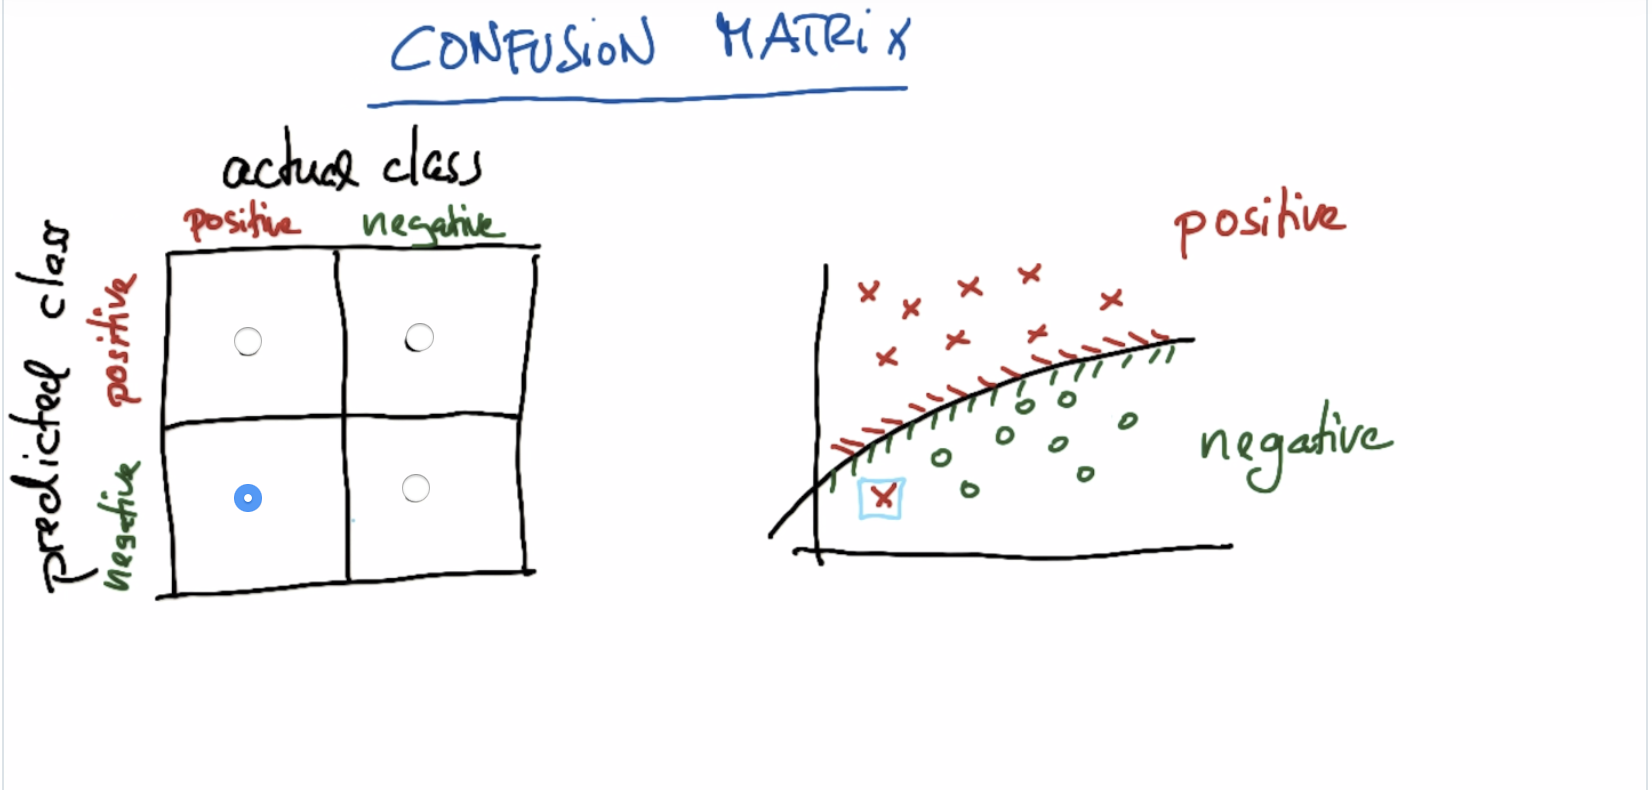 CONFUSION MATRIX
actual class
positive negative
predicted class
positive
negative
positive
negative